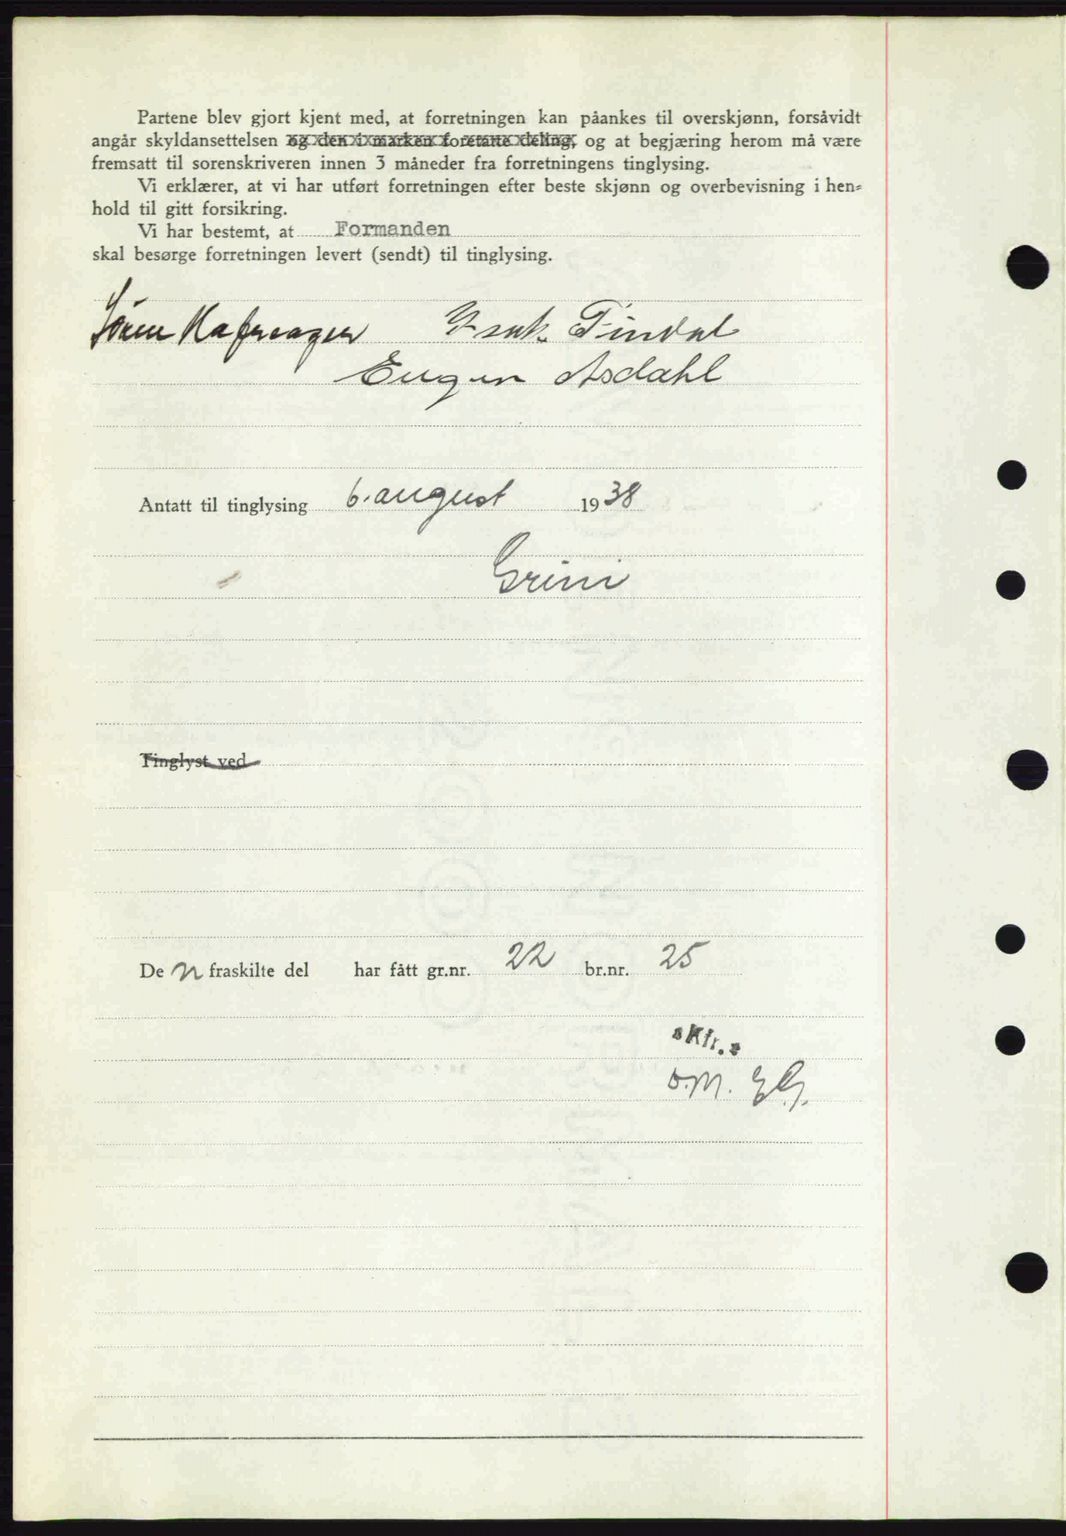 Partene blev gjort kjent med, at forretningen kan påankes til overskjønn, forsåvidt
angår skyldansettelsen og den i marken foretatte deling, og at begjæring herom må være
fremsatt til sorenskriveren innen 3 måneder fra forretningens tinglysing.
Vi erklærer, at vi har utført forretningen efter beste skjønn og overbevisning i hen-
hold til gitt forsikring.
Vi har bestemt, at Formanden
skal besørge forretningen levert (sendt) til tinglysing.
Isak Tindal
Eugen Asdahl
Antatt til tinglysing 6. august 1938
Grini
Tinglyst ved
De n fraskilte del har fått gr.nr. 22 br.nr. 25
skfr.
o.M. EG.